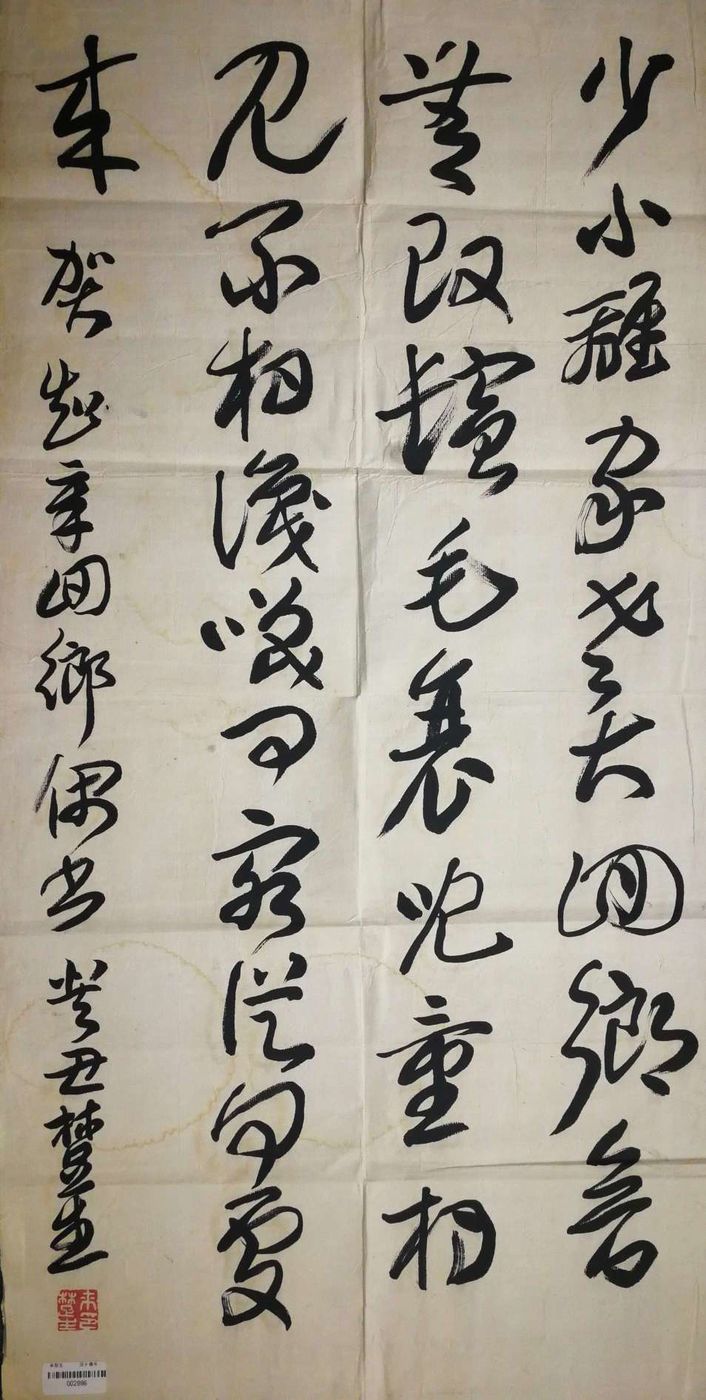 少小離家老大回鄉音
無改鬢毛衰兒童相
見不相識咲問客從何處
來 賀知章回鄉偶书 癸丑楚生
002996